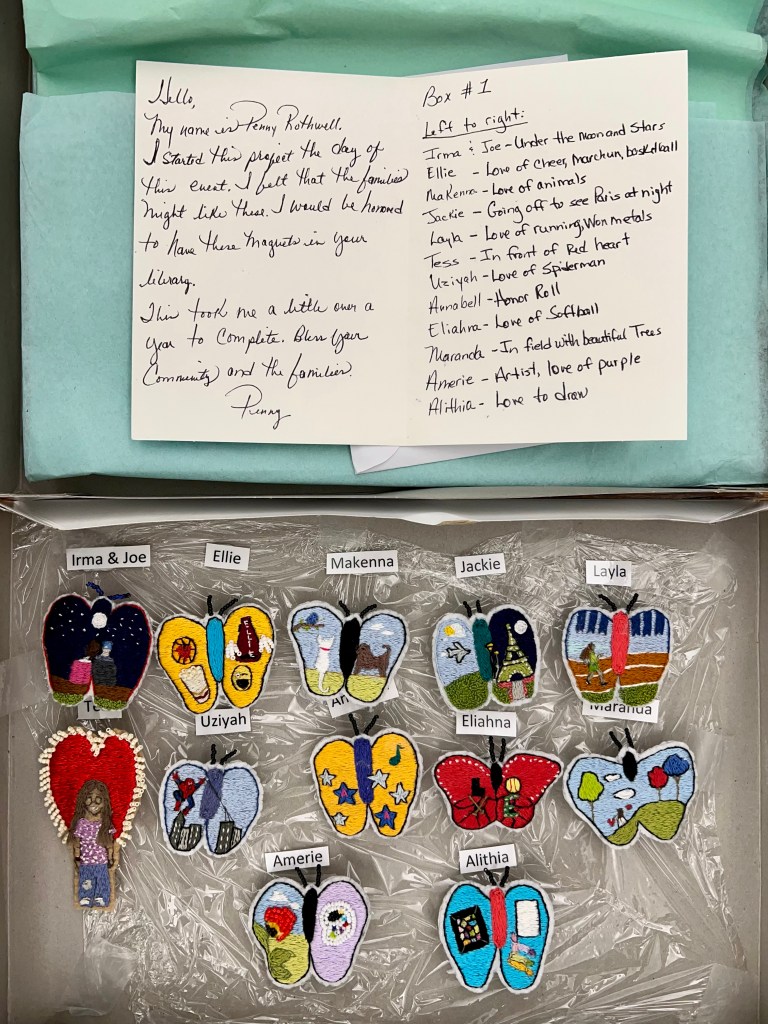 Hello,
My name is Penny Rothwell.
I started this project the day of
this event. I felt that the families
might like these. I would be honored
to have these magnets in your
library.
This took me a little over a
year to complete. Bless your
Community and the families.
Penny
Box #1
Left to right:
Irma & Joe - Under the moon and Stars
Ellie - Love of Cheer, Marchun, basketball
Makenna - Love of animals
Jackie - Going off to see Paris at night
Layla - Love of running, Won metals
Tess - In front of Red heart
Uziyah - Love of Spiderman
Annabell - Honor Roll
Eliahna - Love of Softball
Maranda - In field with beautiful Trees
Amerie - Artist, love of purple
Alithia - Love to draw
Irma & Joe
Ellie
Makenna
Jackie
Layla
ELLIE
Uziyah
Eliahna
Maranda
Amerie
Alithia